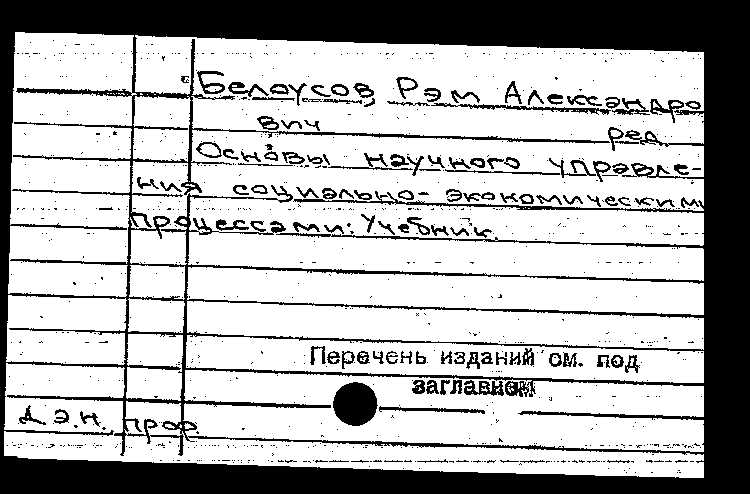 Белоусов Рэм Александро
вич
ред.
Основы научного управле-
ния социально-экономическими
процессами: Учебник.
Перечень изданий см. под
заглавием
д.э.н., проф